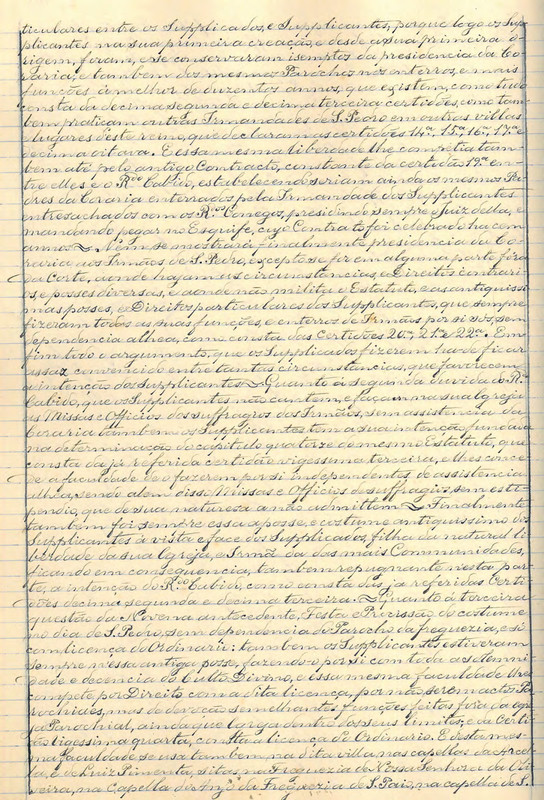 ticulares entre os Supplicados, e Supplicantes, porque logo os Sup-
plicantes na sua primeira creação, e desde a sua primeira o-
rigem, foram, e se conservaram isemptos da presidencia da Co-
raria, e tambem dos mesmos Parochos nos enterros, e mais
funções a melhor de duzentos annos, que existem, como tudo
consta da decima segunda e decima terceira certidões, como tam-
bem praticam outras Irmandades de S. Pedro em outras villas
e lugares d'este reino, que declaram as certidões 14ª, 15ª, 16ª, 17ª e
decima oitava. E essa mesma liberdade lhe compete tam-
bem até pelo antigo Contracto, constante da certidão 19ª en-
tre elles e o Rdo Cabido, estabelecendo seriam ainda os mesmos Pa-
dres da Coraria enterrados pela Irmandade dos Supplicantes
entresachados com os Rdos Conegos, presidindo sempre o Juiz della, e
mandando pegar no Esquife, cujo Contrato foi celebrado ha cem
annos. Nem se mostrará finalmente presidencia da Co-
raria aos Irmãos de S. Pedro, excepto se for em alguma parte fóra
da Corte, aonde hajam as circunstancias, e Direitos contrari-
os, e posses diversas, e aonde não milita o Estatuto, e as antiquissi-
mas posses, e Direitos particulares dos Supplicantes, que sempre
fizeram todas as suas funções, e enterros de Irmãos por si sós, sem
dependencia alhea, como consta das certidões 20ª, 21ª e 22ª. Em-
fim todo o argumento, que os Supplicados fizerem ha-de ficar
assaz convencido entre tantas circunstancias, que favorecem
a intenção dos Supplicantes. Quanto á segunda duvida do Rdo
Cabido, que os Supplicantes não cantem, e façam na sua Igreja
as Missas e Officios dos suffragios dos Irmãos, sem assistencia da
Coraria tambem os Supplicantes tem a sua intenção fundada
na determinação do capitulo quatorze do mesmo Estatuto, que
consta da já referida certidão vigessima terceira, e lhes conce-
de a faculdade de o fazerem por si independentes de assistencia
alhea, sendo alem disso Missas e Officios de suffragio, sem esti-
pendio, que de sua naturesa a não admittem. Finalmente
tambem foi sempre essa a posse, e costume antiquissimo dos
Supplicantes á vista e face dos Supplicados, filha da natural li-
berdade da sua Igreja, e Irmã da das mais Communidades,
ficando em consequencia, tambem repugnante nesta par-
te, a intenção do Rdo Cabido, como consta das ja referidas Certi-
dões decima segunda e decima terceira. Quanto á terceira
questão da Novena antecedente, Festa e Procissão do costume
no dia de S. Pedro, sem dependencia do Parocho da freguezia, e só
com licença do Ordinario: tambem os Supplicantes estiveram
sempre n'essa antiga posse, fazendo-o por si com toda a solemni-
dade e decencia do Culto Divino, e essa mesma faculdade lhes
compete por Direito com a dita licença, por não serem actos Pa-
rochiaes, mas de devoção semelhantes funções feitas fóra da Igre-
ja Parochial, ainda que larga dentro dos seus limites; e da Certi-
dão vigessima quarta, consta a licença do Ordinario. E desta mes-
ma faculdade se usa tambem, na dita villa, nas capellas da Arce-
la, e de Luiz Pimenta, sitas, na Freguezia de Nossa Senhora da Oli-
veira, na Capella do Anjo da Freguezia de S. Paio, na capella de S.